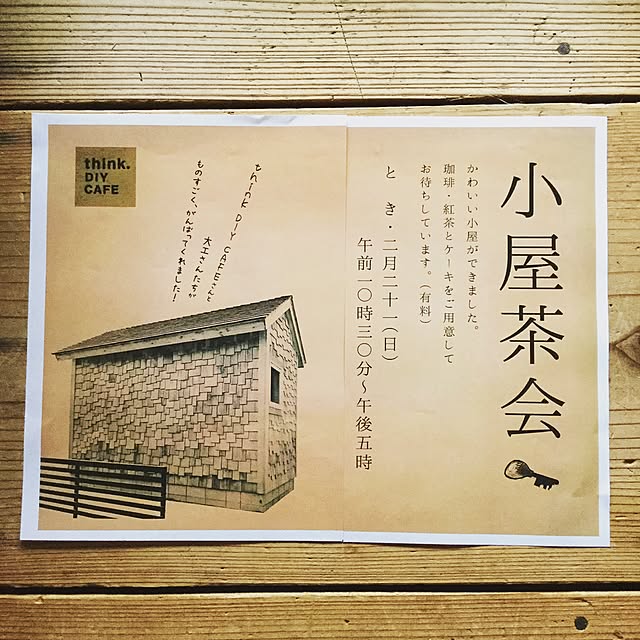 小屋茶会
かわいい小屋ができました。
珈琲・紅茶とケーキをご用意して
お待ちしています。(有料)
と　き・二月二十一(日)
午前一〇時三〇分〜午後五時
think DIY CAFEさんと
大工さんたちが
ものすごく、がんばってくれました！
think.
DIY
CAFE